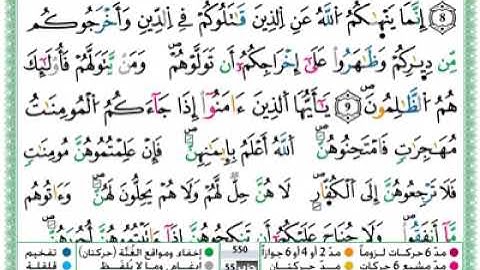 8 إِنَّمَا يَنْهَىٰكُمُ اُ۬للَّهُ عَنِ اِ۬لذِينَ قَٰتَلُوكُمْ فِے اِ۬لدِّينِ وَأَخْرَجُوكُم
مِّن دِيَٰرِكُمْ وَظَٰهَرُواْ عَلَىٰٓ إِخْرَاجِكُمُۥٓ أَن تَوَلَّوْهُمْۖ وَمَنْ يَّتَوَلَّهُمْ فَأُوْلَٰٓئِكَ
هُمُ اُ۬لظَّٰلِمُونَۖ 9 يَٰٓأَيُّهَا اَ۬لذِينَ ءَامَنُوٓاْ إِذَا جَآءَكُمُ اُ۬لْمُومِنَٰتُ
مُهَٰجِرَٰتٖ فَامْتَحِنُوهُنَّۖ اَ۬للَّهُ أَعْلَمُ بِإِيمَٰنِهِنَّۖ فَإِنْ عَلِمْتُمُوهُنَّ مُومِنَٰتٖ
فَلَا تَرْجِعُوهُنَّ إِلَى اَ۬لْكُفّ۪ارِۖ لَا هُنَّ حِلّٞ لَّهُمْ وَلَا هُمْ يَحِلُّونَ لَهُنَّۖ وَءَاتُوهُم
مَّآ أَنفَقُواْۖ وَلَا جُنَاحَ عَلَيْكُمُۥٓ أَن تَنكِحُوهُنَّ إِذَآ ءَاتَيْتُمُوهُنَّ أُجُورَهُنَّۖ
مدّ 6 حركات لزوماً مدّ 2 أو 4 أو 6 جوازاً 550 إخفاء ومواقع الغُنَّة (حركتان) تفخيم
مدّ مشبع 6 حركات مدّ حركتان إدغام، وما لا يُلفظ قلقلة